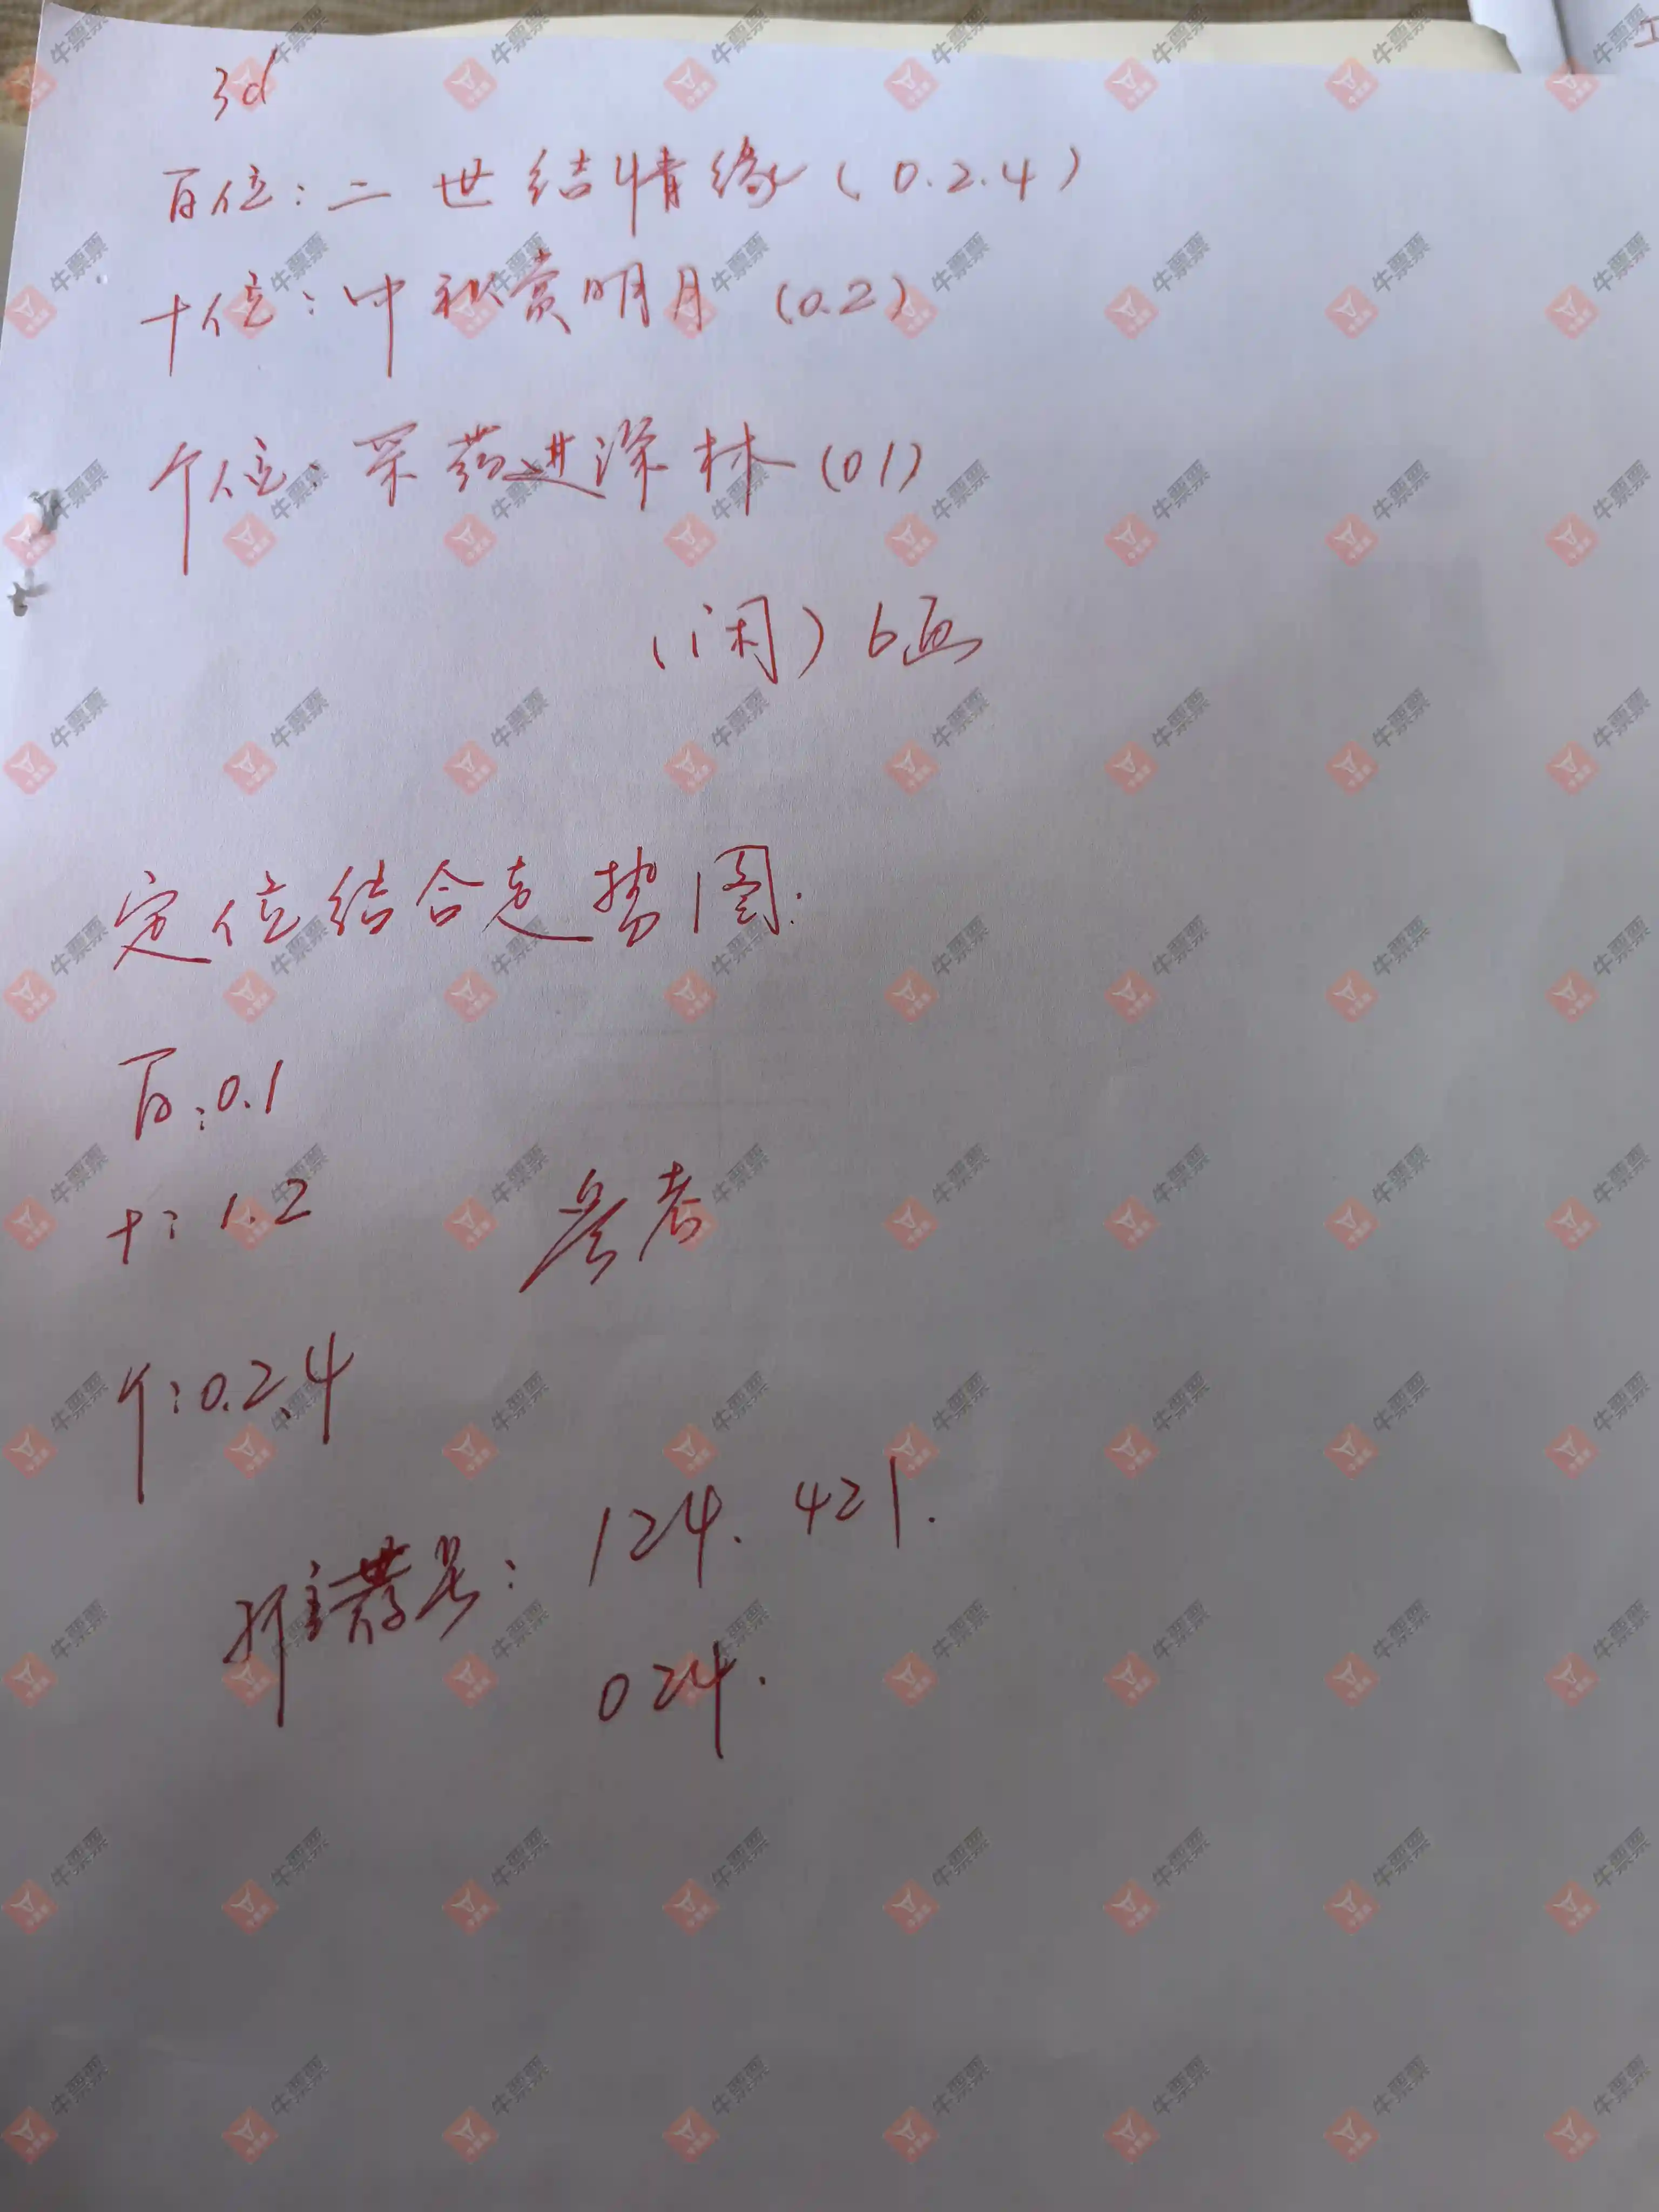 3d
百位:二世结情缘(0.2.4)
十位:中秋赏明月(0.2)
个位:采药进深林(01)
(闲)6画
定位结合走势图.
百:0.1
十:1.2
参考
个:0.2.4
推荐号:124.421.
024.
牛票票